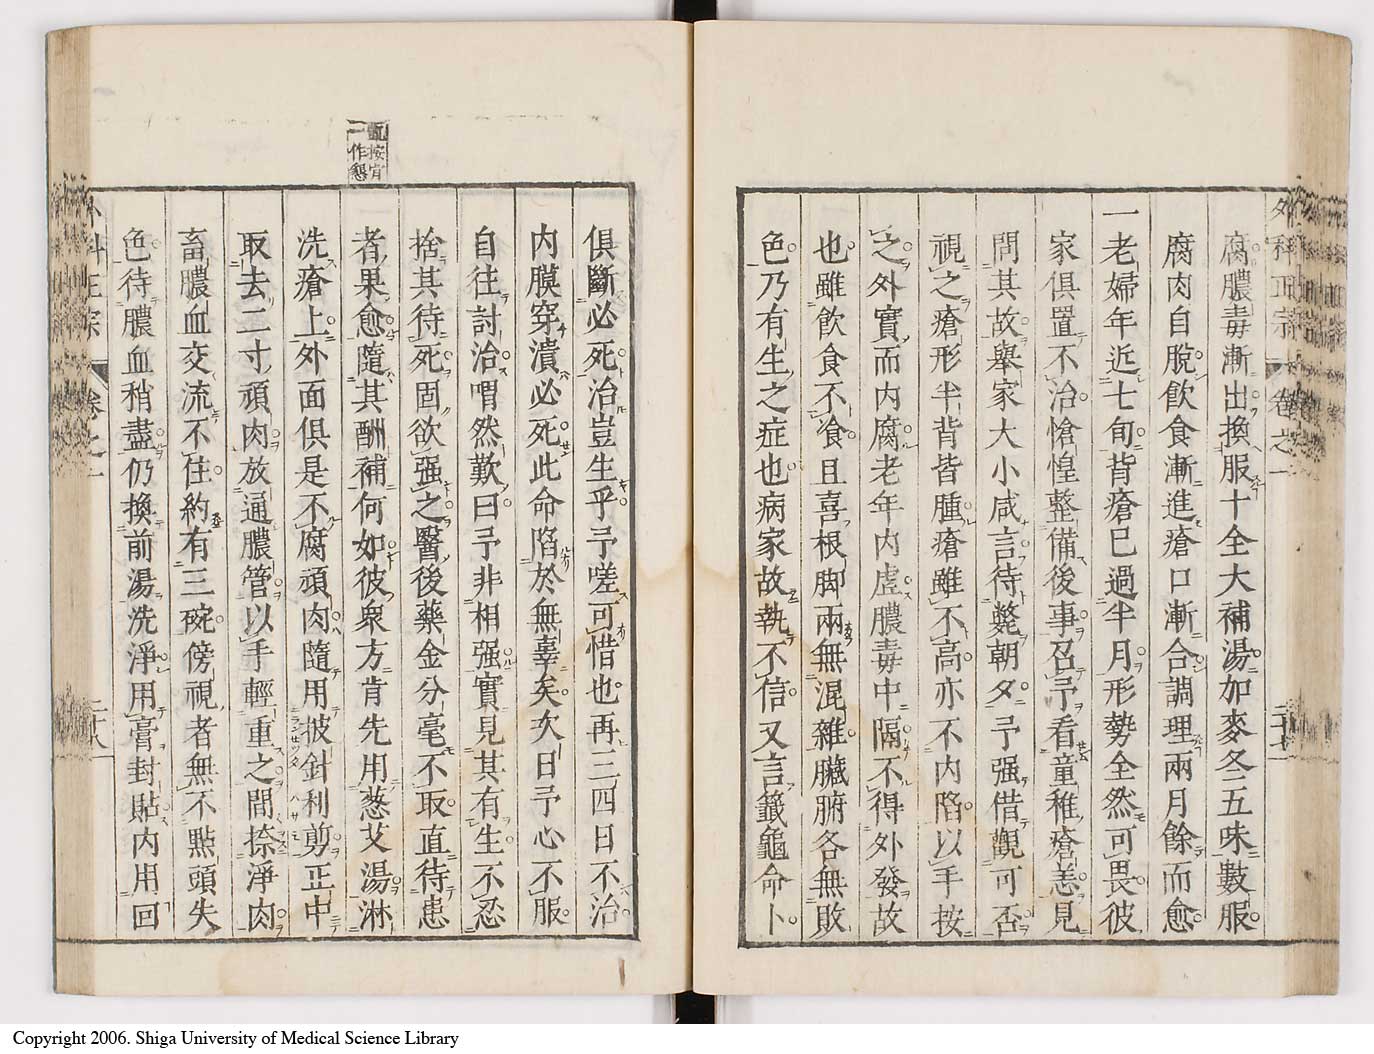 外科正宗 卷之一 二十七
腐膿毒漸出換服十全大補湯加麥冬五味數服
腐肉自脫飲食漸進瘡口漸合調理兩月餘而愈
一老婦年近七旬背瘡已過半月形勢全然可畏彼
家俱置不治愴惶整備後事召予看童稚瘡恙見
問其故舉家大小咸言待斃朝夕予强借觀可否
視之瘡形半背皆腫瘡雖不高亦不内陷以手按
之外實而内腐老年内虛膿毒中隔不得外發故
也雖飲食不飡且喜根脚兩無混雜臟腑各無敗
色乃有生之症也病家故執不信又言籤龜命卜
俱斷必死治豈生乎予嗟可惜也再三四日不治
内膜穿潰必死此命陷於無辜矣次日予心不服
自往討治喟然歎曰予非相强實見其有生不忍
捨其待死固欲强之醫後藥金分毫不取直待患
者果愈隨其酬補何如彼衆方肯先用葱艾湯淋
洗瘡上外面俱是不腐頑肉隨用披針利剪正中
取去二寸頑肉放通膿管以手輕重之間捺淨肉
畜膿血交流不住約有三碗傍視者無不點頭失
色待膿血稍盡仍換前湯洗淨用膏封貼内用回
按肯
一作懇
外科正宗 卷之一 二十八
Copyright 2006. Shiga University of Medical Science Library